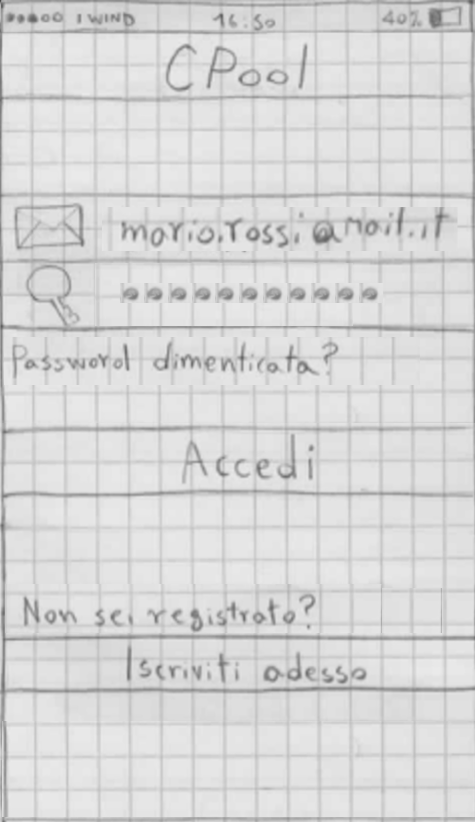 ●●●○○ I WIND 16:50 40%
CPool
mario.rossi@mail.it
●●●●●●●●●●●
Password dimenticata?
Accedi
Non sei registrato?
Iscriviti adesso